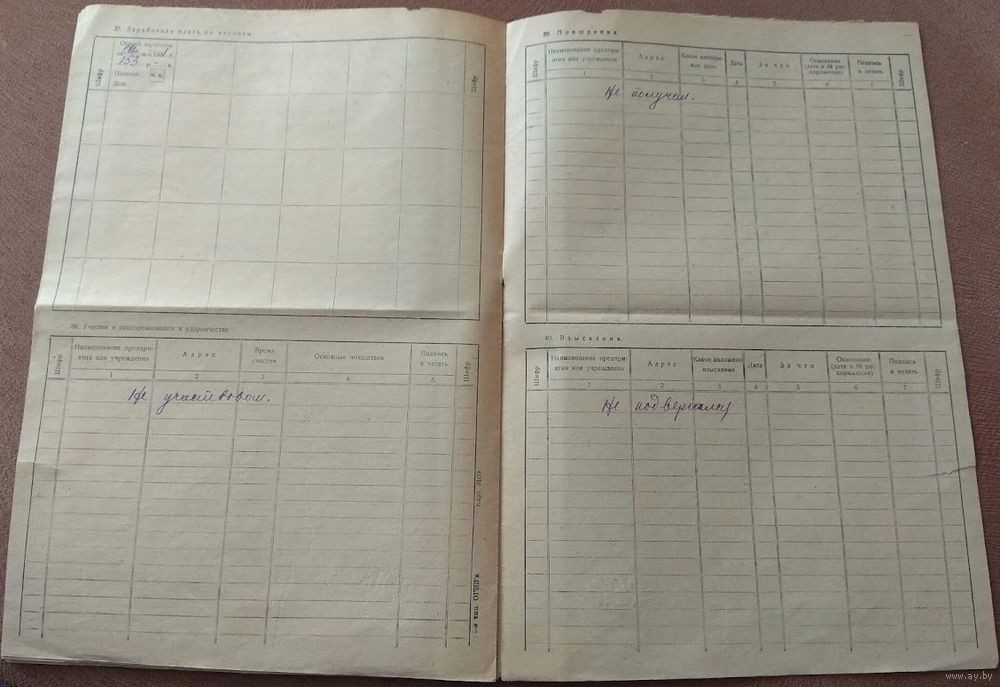 37. Заработная плата по месяцам
Шифр
Общий заработок
м-ц 193 г.
103 р. — к.
Подпись м. п.
Дата
Шифр
38. Участие в соцсоревновании и ударничестве
Шифр
Наименование предприятия или учреждения
Адрес
Время участия
Основные показатели
Подпись и печать
Шифр
1 2 3 4 5
Не участвовал.
39. Поощрения
Шифр
Наименование предпри-
ятия или учреждения
Адрес
Какое поощрение дано
Дата
За что
Основание
(дата и № рас-
поряжения)
Подпись
и печать
Шифр
1 2 3 4 5 6 7
Не получал.
40. Взыскания
Шифр
Наименование предпри-
ятия или учреждения
Адрес
Какое наложено
взыскание
Дата
За что
Основание
(дата и № рас-
поряжения)
Подпись
и печать
Шифр
1 2 3 4 5 6 7
Не подвергался
тип. ОГИЗ'а
www.ay.by